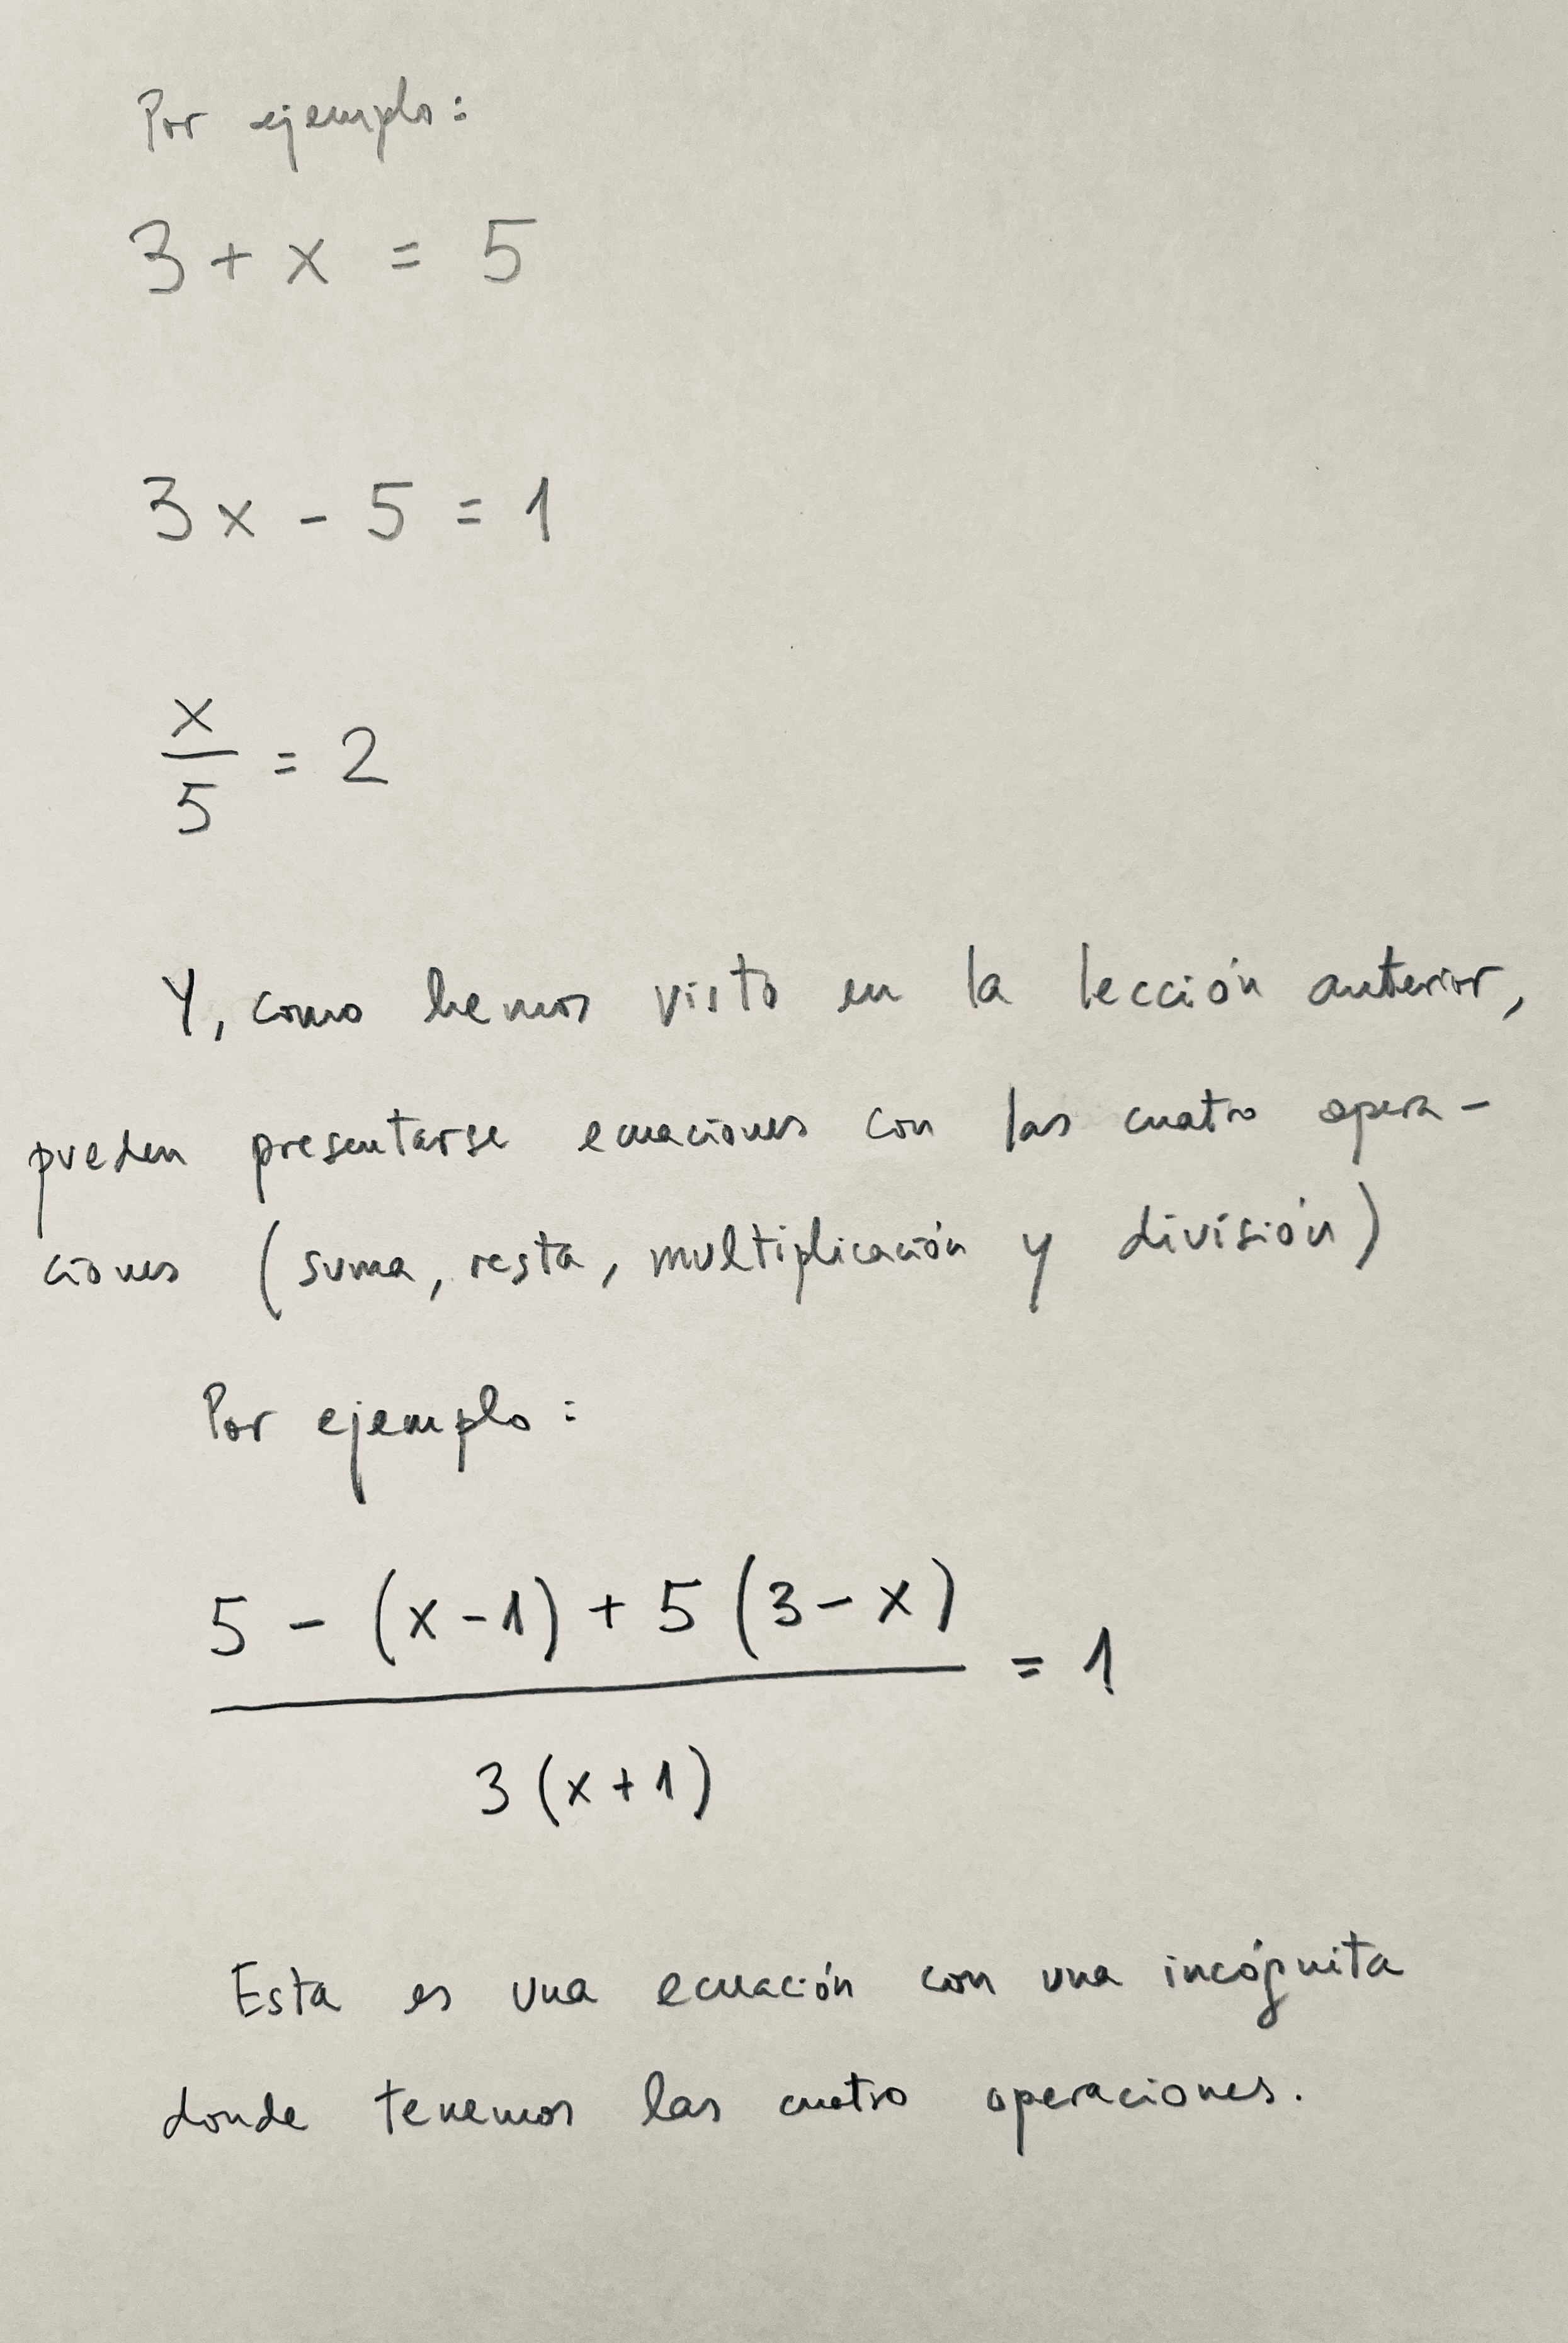 Por ejemplo:
3 + x = 5
3x - 5 = 1
x/5 = 2
Y, como hemos visto en la lección anterior,
pueden presentarse ecuaciones con las cuatro opera-
ciones (suma, resta, multiplicación y división)
Por ejemplo:
5 - (x-1) + 5 (3-x)
= 1
3 (x+1)
Esta es una ecuación con una incógnita
donde tenemos las cuatro operaciones.